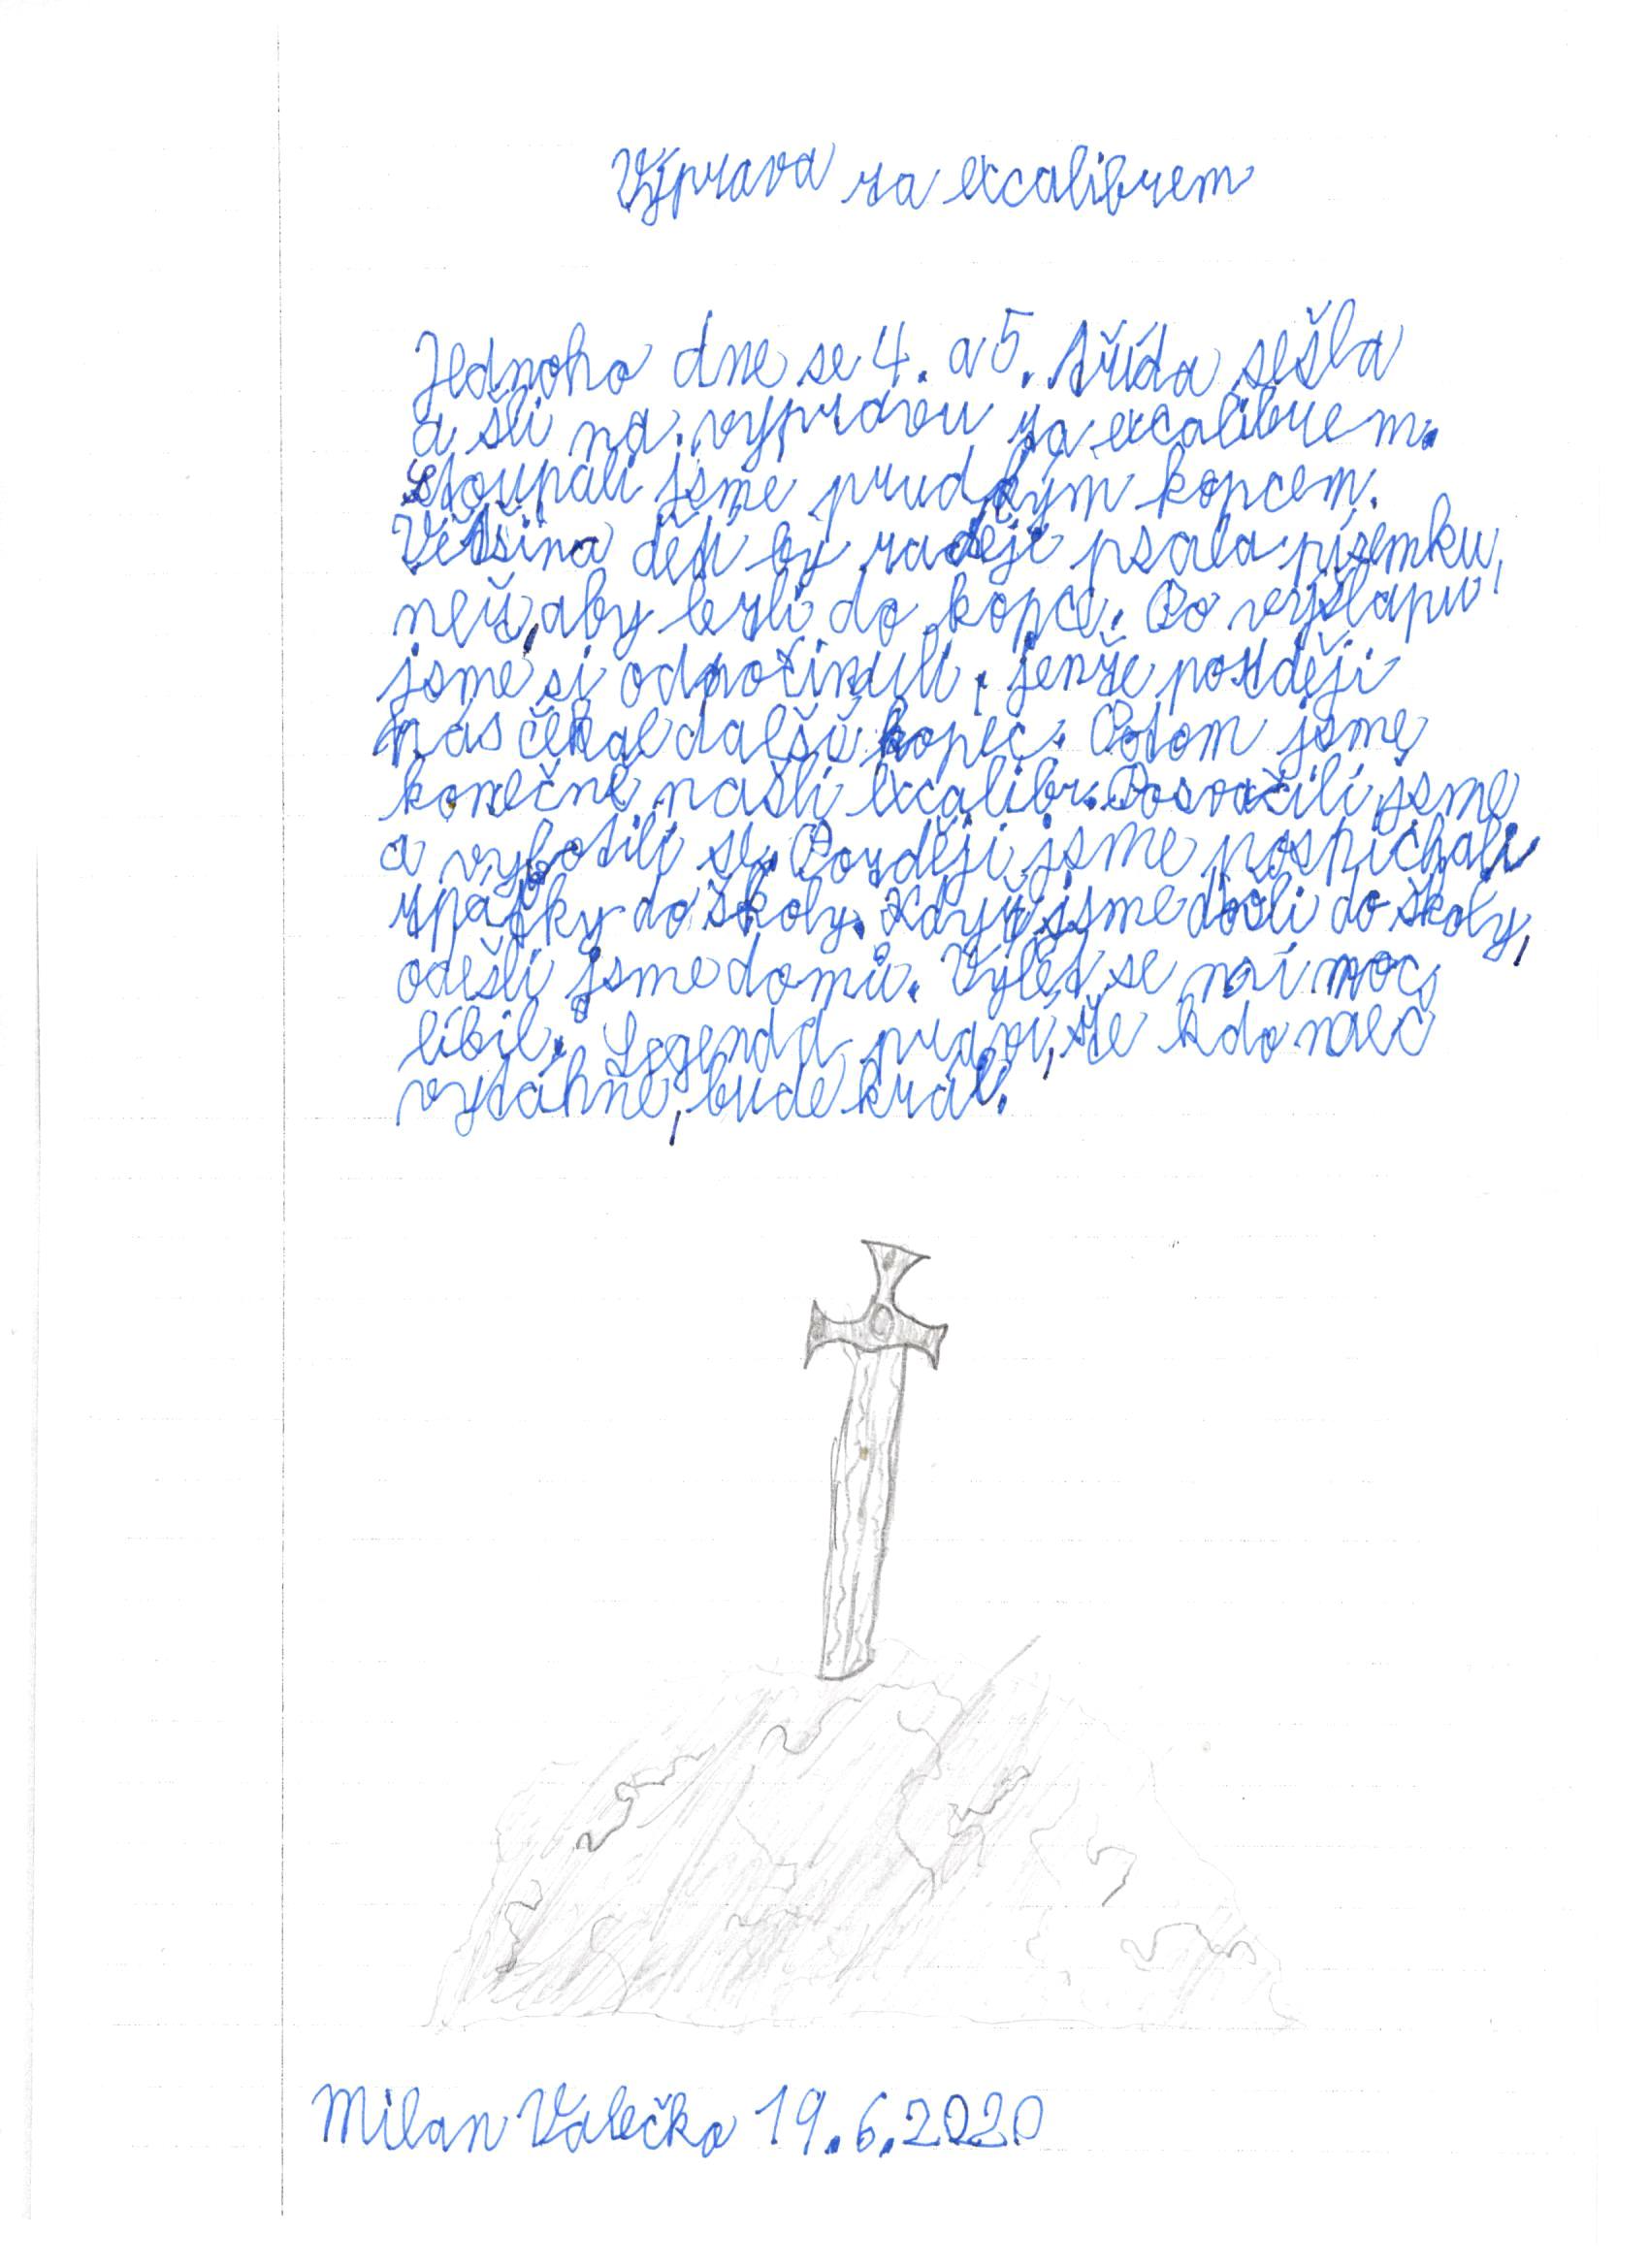 Výprava za excalibrem
Jednoho dne se 4. a 5. třída sešla
a šli na výpravu za excalibrem.
Stoupali jsme prudkým kopcem.
Většina dětí by raději psala písemku,
než, aby lezli do kopce. Po výšlapu
jsme si odpočinuli, jenže později
nás čekal další kopec. Potom jsme
konečně našli excalibr. Posvačili jsme
a vyfotili se. Později jsme pospíchali
zpátky do školy. Když jsme došli do školy,
odešli jsme domů. Výlet se mi moc
líbil. Legenda praví, že kdo meč
vytáhne, bude král.
Milan Valečko 19.6.2020